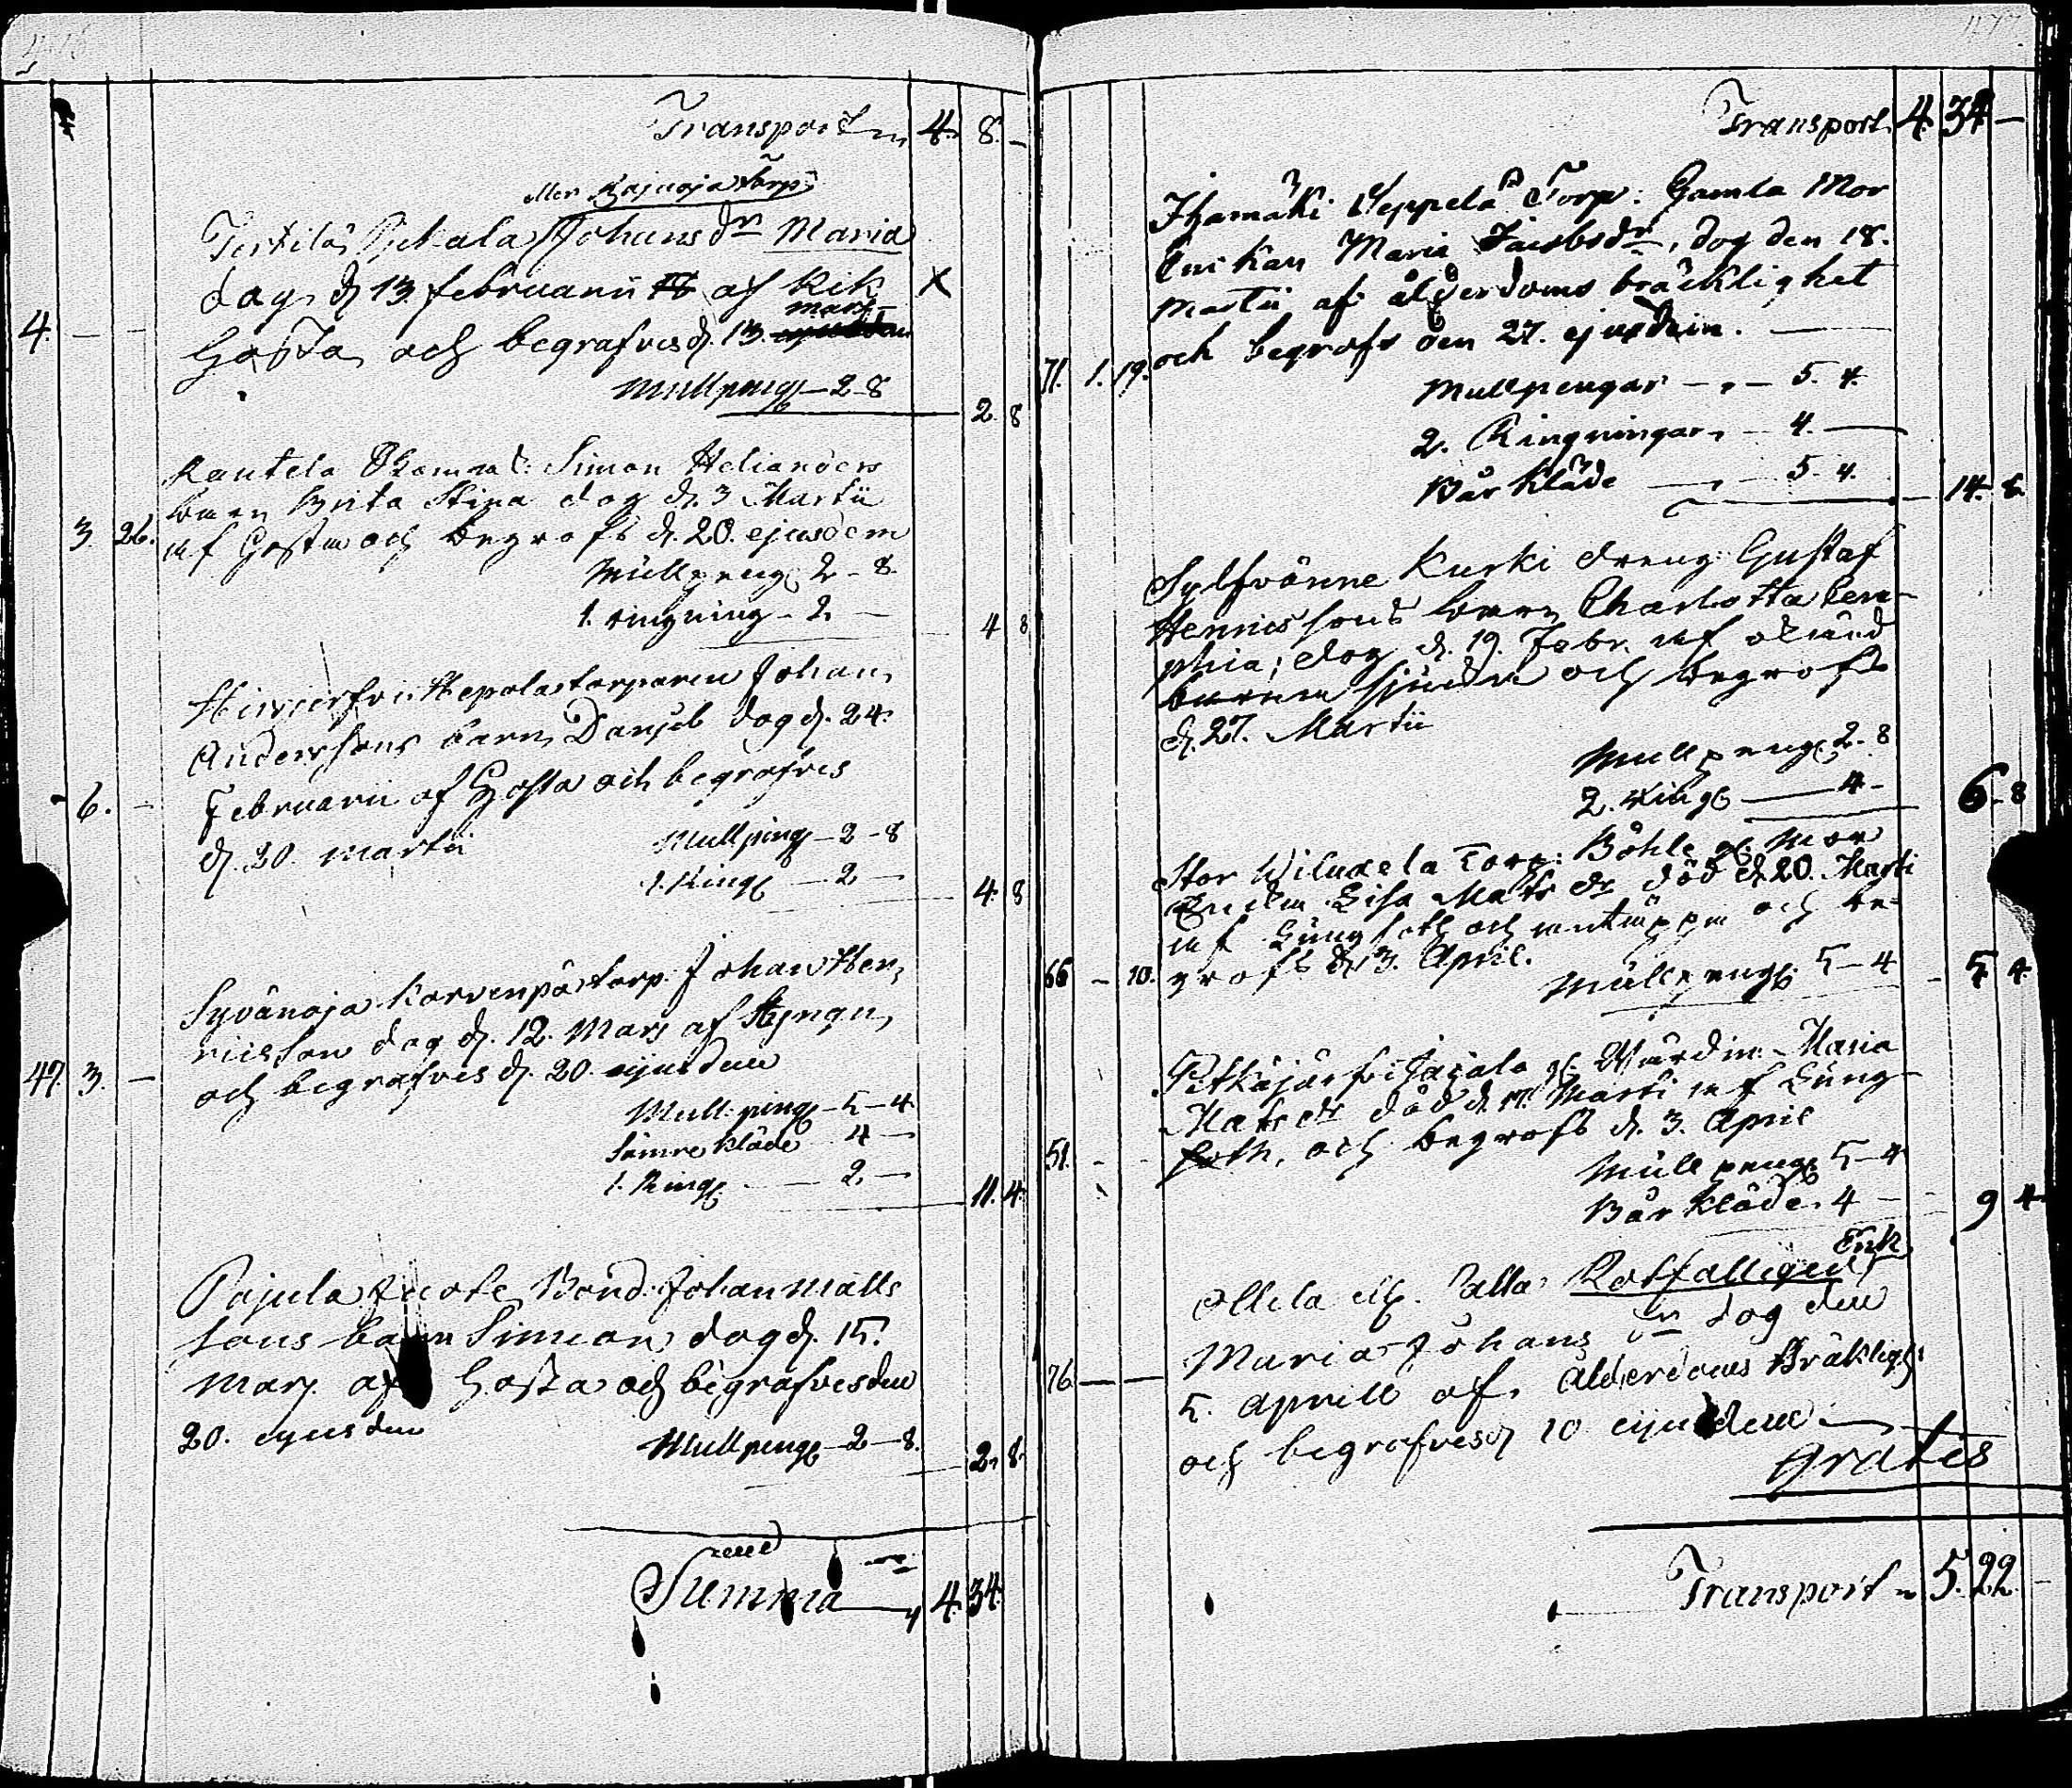 Transport 4. 8. -
eller Kajuoja torp
Tertilä Pjukala Johans dr Maria
dog d. 13 februarii af Kik
mart
4. - - Hosta och begrafves d. 13.
Mullpeng - 2 - 8
2 8
Rautela Simon Helianders
barn Brita Stina dog d. 3 Martii
3. 26. af Hosta och begrofs d. 20. ejusdem
Mullpeng 2 - 8
1. ringning - 2 -
4 8
Hirvijerfvi Hepola torparen Johan
Anderssons barn Daniel dog d. 24
Februarii af Hosta och begrafves
6. - d. 20. martii
Mullpeng - 2 - 8
1. Ring - 2 -
4. 8
Syvänoja Korvenpä torp. Johan Hen
ricsson dog d. 12. Mars af Styngn
47. 3. - och begrafves d. 20. ejusdem
Mull. peng - 5 - 4
Sämre kläde 4 -
1. Ring - 2 -
11. 4.
Pajula Bond. Johan Matts
sons barn Simeon dog d. 15.
Mars af Hosta och begrafves den
20. ejusdem
Mullpeng - 2 - 8.
2. 8.
Summa 4. 34.
Transport 4. 34 -
Ihamäki Seppelä Torp: Gamla Mor
Enkan Maria Jacobsdr, dog den 18.
Martii af ålderdoms bräcklighet
71. 1. 19. och begrofs den 27. ejusdem.
Mullpengar - - 5. 4.
2. Ringningar - 4. -
Bår Kläde - 5. 4.
14. 8.
Sylfvänne Kurki dreng Gustaf
Henricssons barn Charlotta Sera-
phia; dog d. 19. Febr. af okänd
barna sjukdn och begrofs
d. 27. Martii
Mullpeng 2 - 8
2. Ring - 4 -
6 - 8
Stor Wiluxela Torp: Böhle gl. Mor
Enkan Lisa Mats dr död d. 20. Marti
af Lungsoth och och be-
66 - 10. grofs d. 3. April.
Mullpeng. 5 - 4 - 5. 4.
Pitkäjärfvi Jajala gl. Värdin. Maria
Mats dr död d. 17. Marti af Lung
51. - - soth, och begrofs d. 3. April
Mullpeng 5 - 4
Bår kläde. 4 - - 9 4
Enk
Ollila Palla Rotfattigen
Maria Johans dr dog den
76 - - 5. Aprill af. Ålderdoms Bräkligh
och begrafves d 10 ejusdem
gratis
Transport 5. 22 -